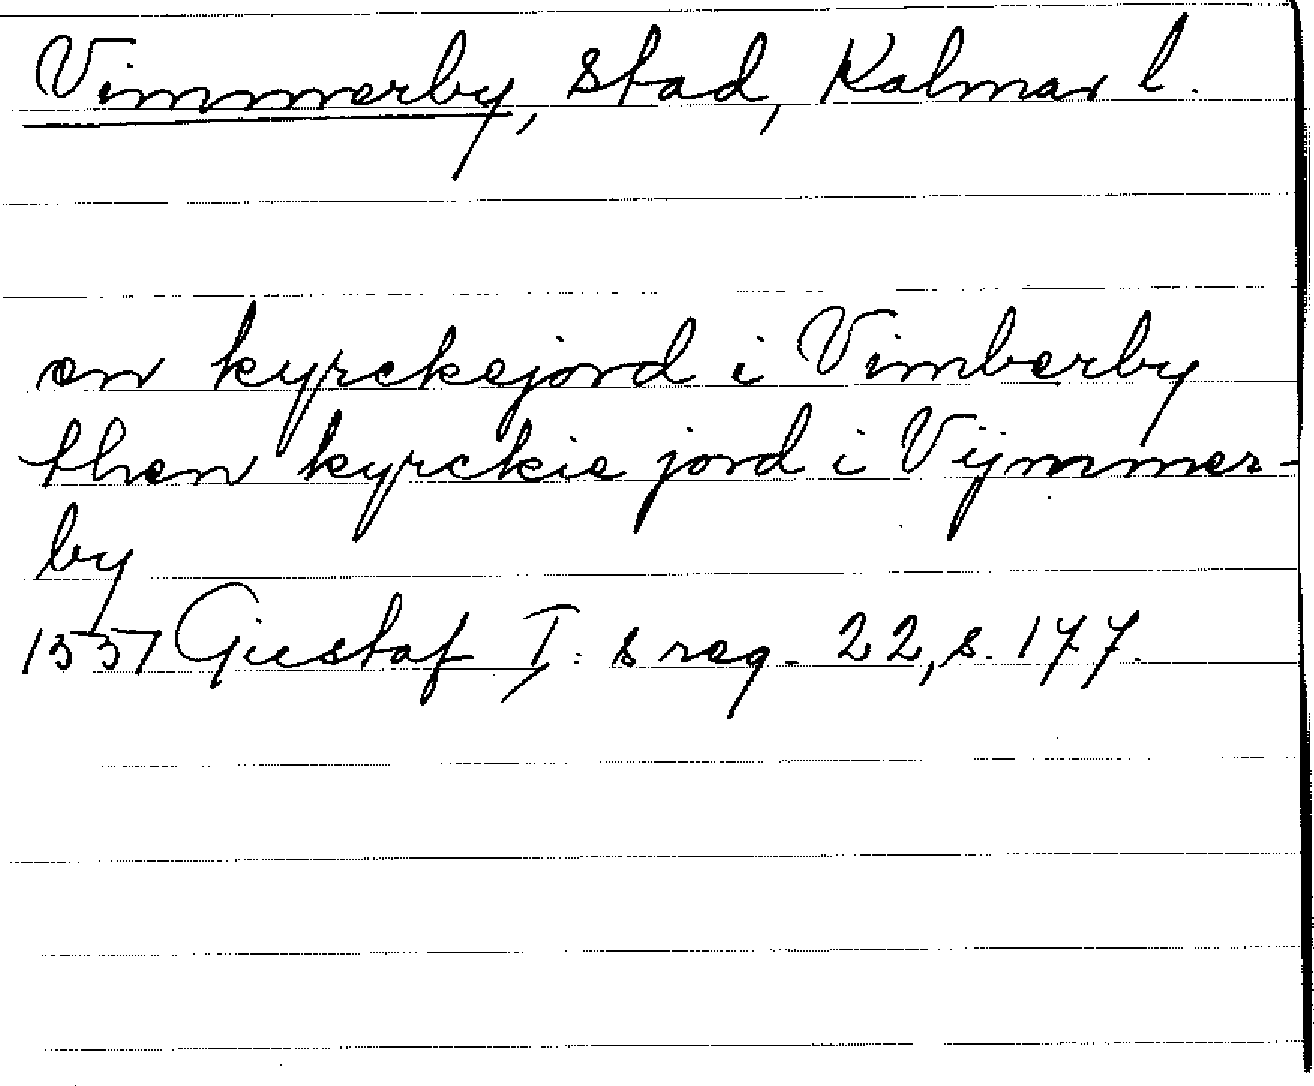 Vimmerby, stad, Kalmar l.
en kyrckejord i Vimberby
then kyrckie jord i Vijmmer-
by
1551 Gustaf I: s reg. 22, s. 177.